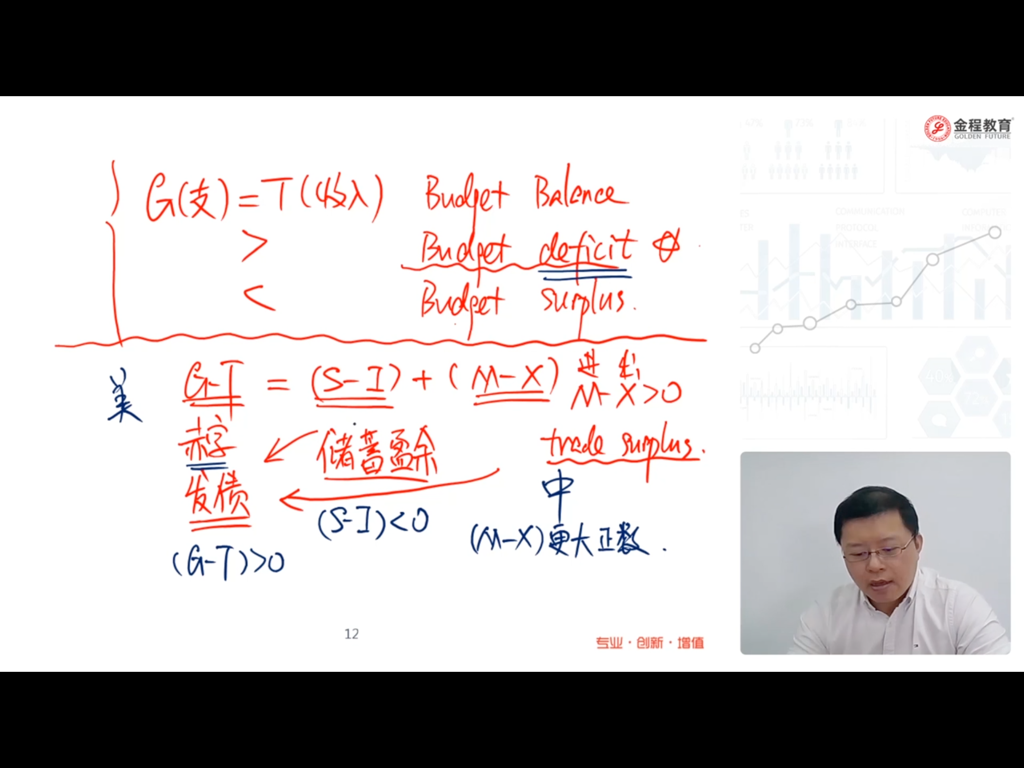 金程教育
GOLDEN FUTURE
G(支) = T(收入) Budget Balance
> Budget deficit
< Budget surplus.
美 G-T = (S-I) + (M-X) 进 出
M-X>0
赤字 储蓄盈余 trade surplus.
发债 中
(S-I)<0
(M-X)更大正数.
(G-T)>0
12
专业·创新·增值